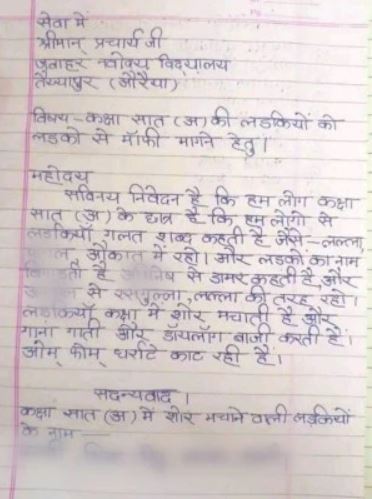 सेवा में
श्रीमान् प्रचार्य जी
जवाहर नवोदय विद्यालय
तैय्यापुर (औरैया)
विषय - कक्षा सात (अ) की लडकियों को
लडको से मॉफी मागने हेतु।
महोदय
सविनय निवेदन है कि हम लोग कक्षा
सात (अ) के छात्र है कि हम लोगो से
लडकियाँ गलत शब्द कहती है जैसे - लल्ला,
औकात में रहो। और लडको का नाम
बिगाडती है से डामर कहती है, और
से रसगुल्ला, लल्ला की तरह रहो।
लडकियाँ कक्षा में शोर मचाती है और
गाना गाती और डॉयलॉग बाजी करती हैं।
ओम् फोम् धर्राटे काट रही हैं।
सदन्यवाद।
कक्षा सात (अ) में शोर मचाने वाली लड़कियों
के नाम